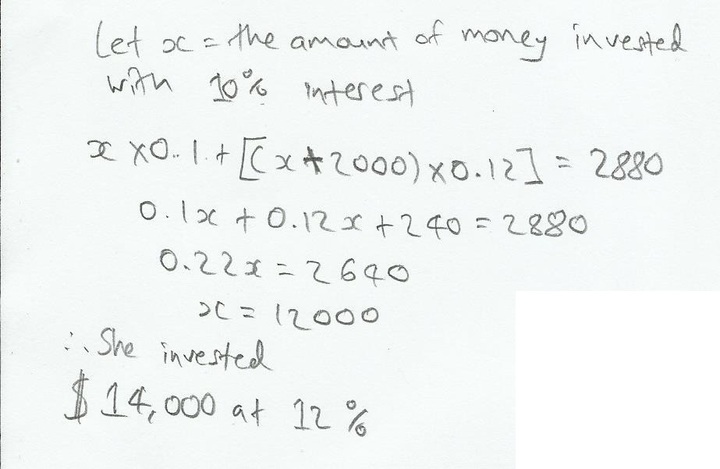 Let x = the amount of money invested
with 10% interest
x x0.1 + [(x+2000)x0.12] = 2880
0.1x + 0.12x + 240 = 2880
0.22x = 2640
x = 12000
∴ She invested
$14,000 at 12%